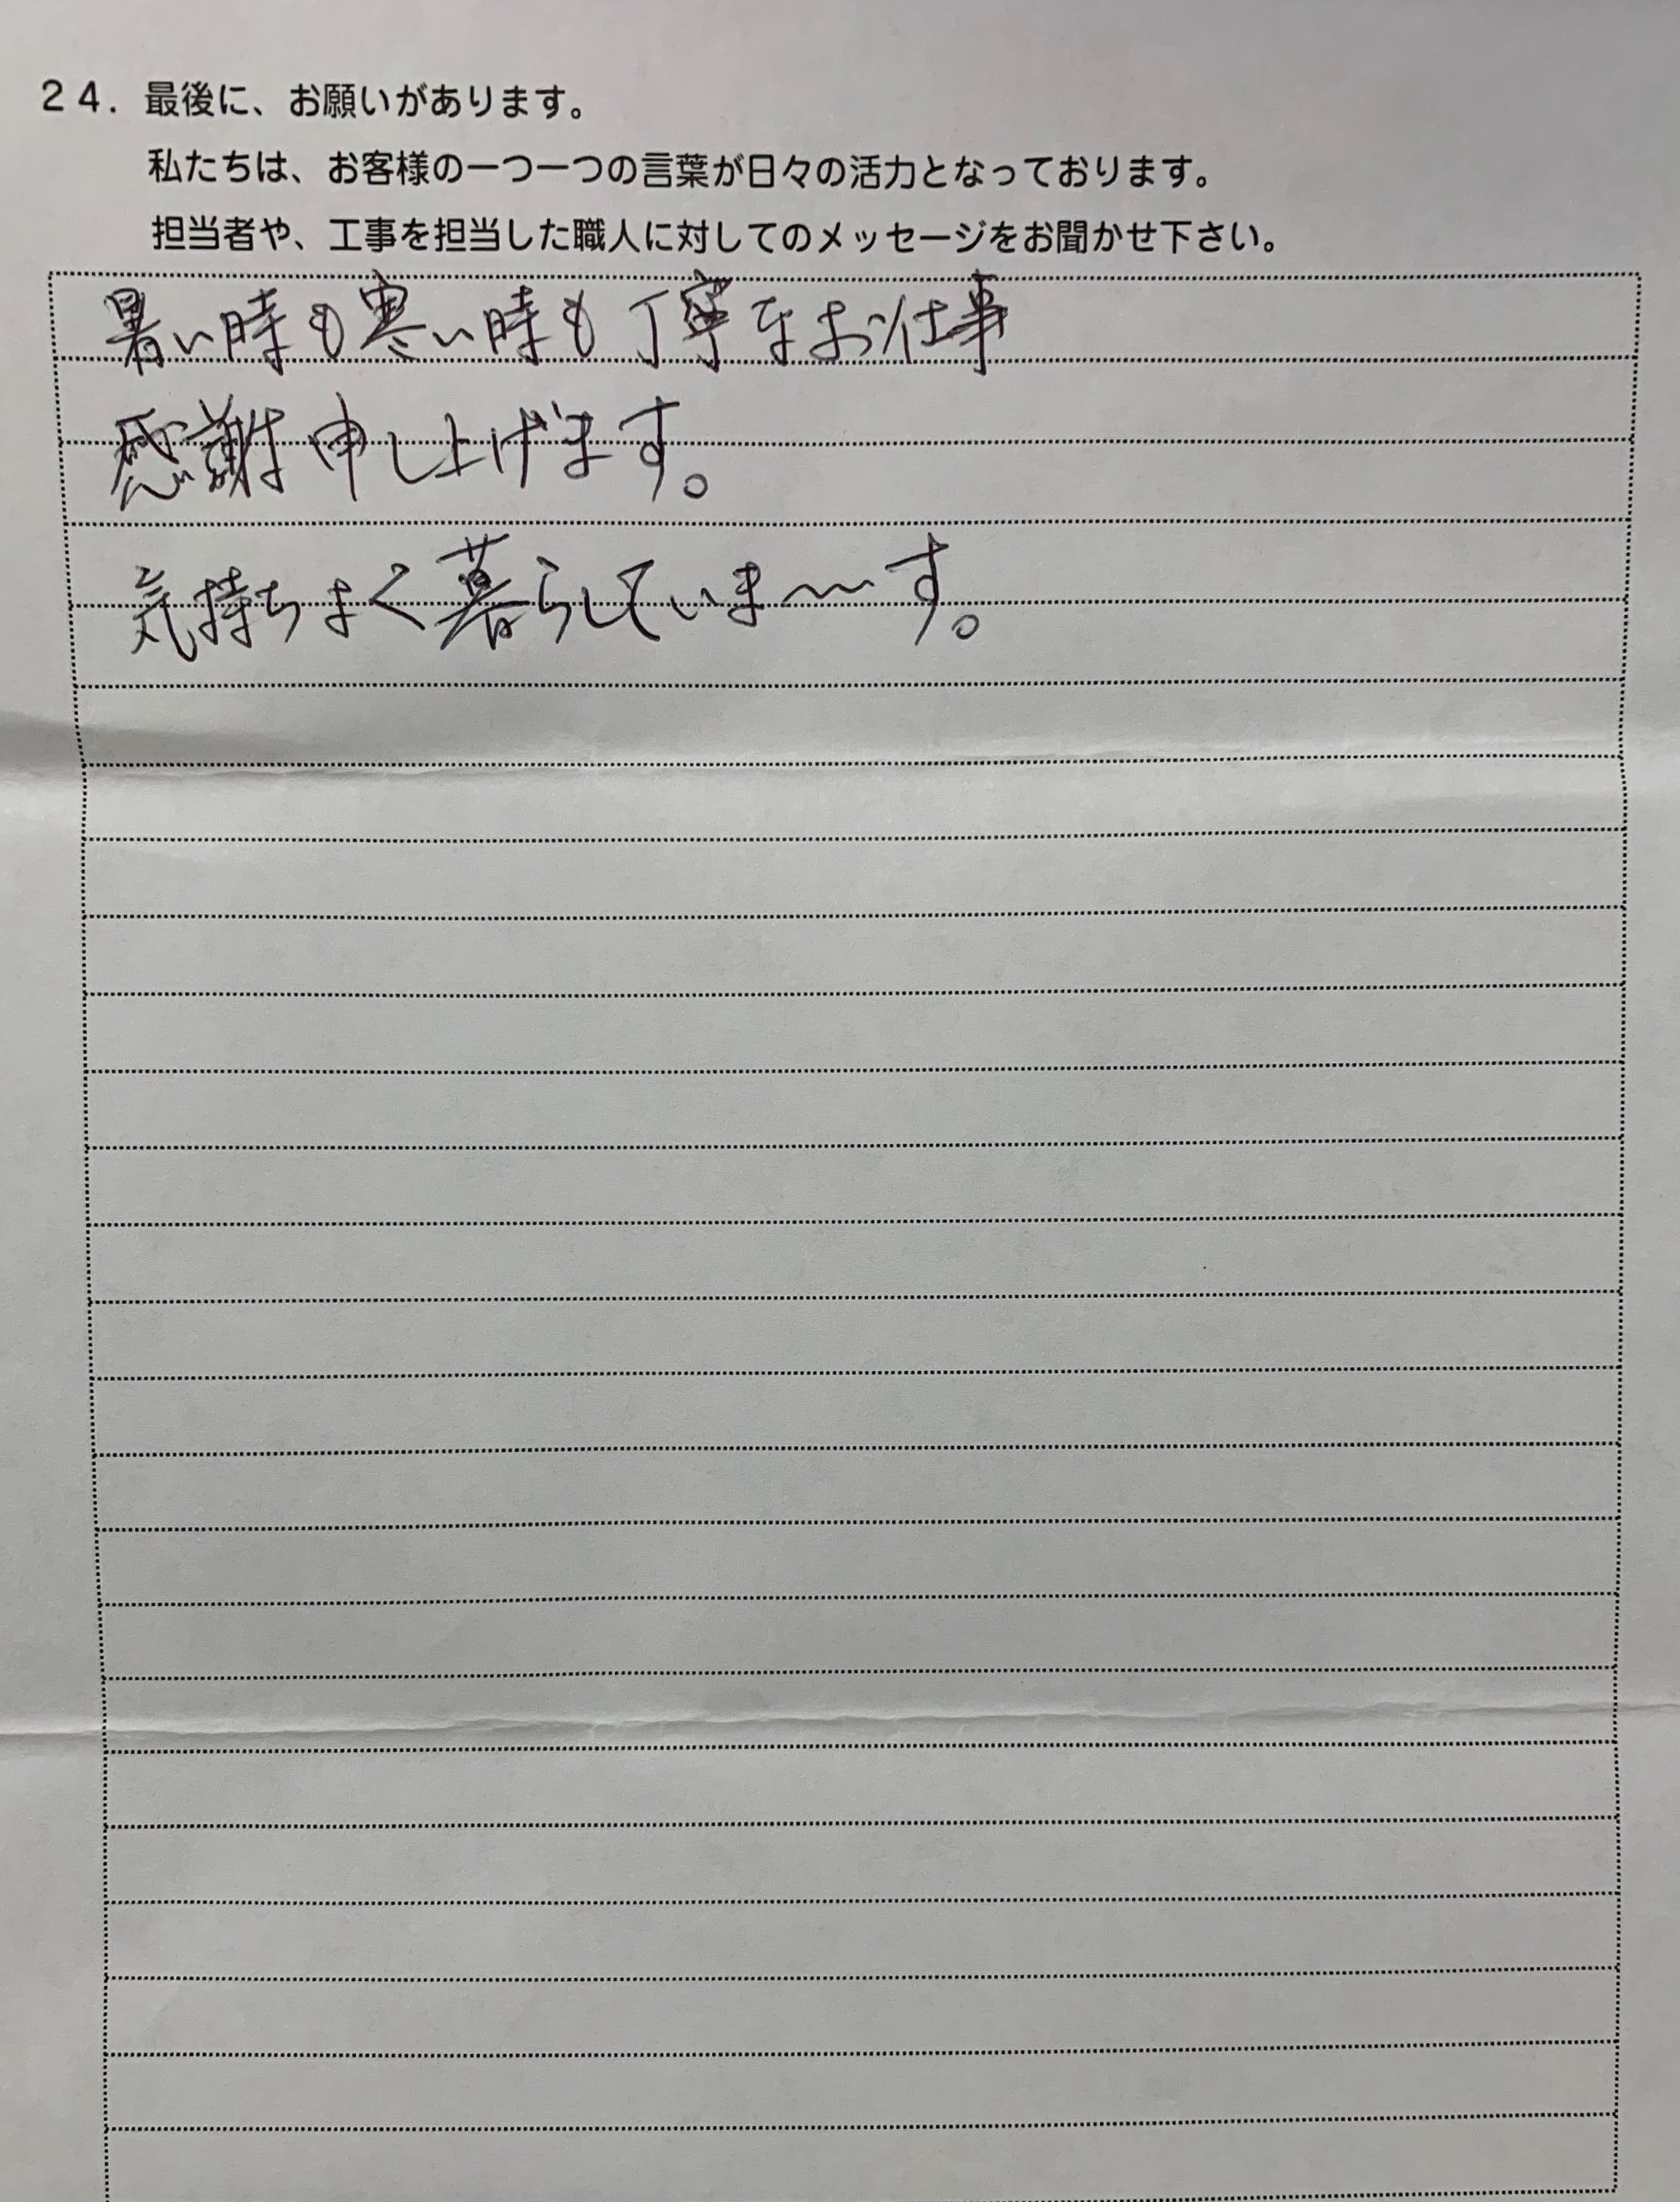 24. 最後に、お願いがあります。
私たちは、お客様の一つ一つの言葉が日々の活力となっております。
担当者や、工事を担当した職人に対してのメッセージをお聞かせ下さい。
暑い時も寒い時も丁寧なお仕事
感謝申し上げます。
気持ちよく暮らしていま〜す。